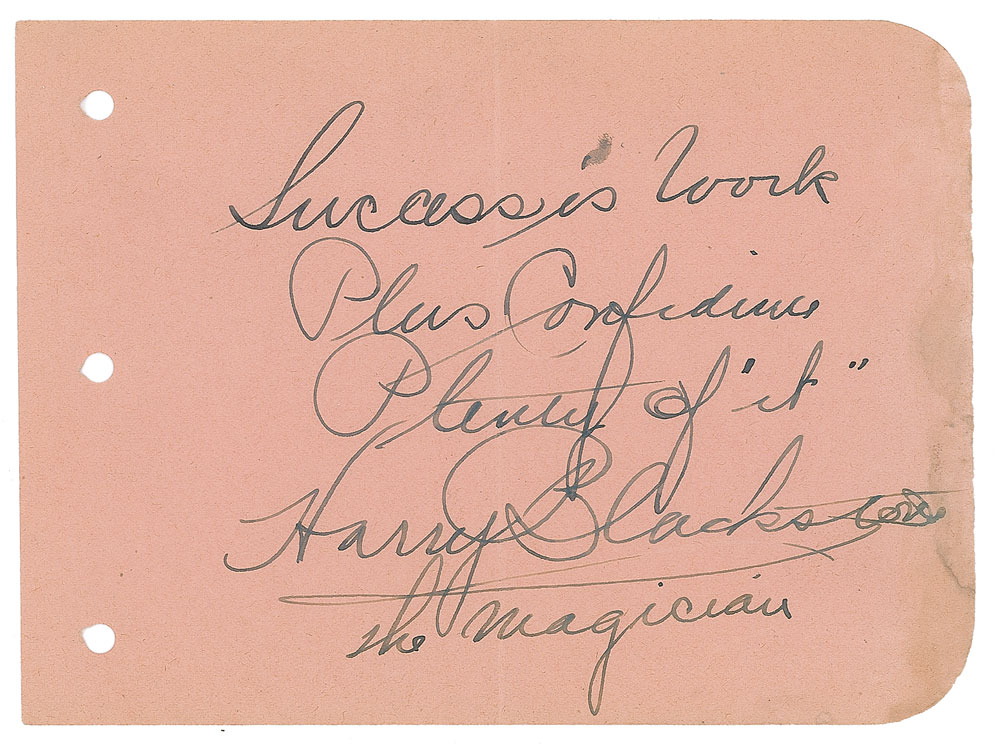 Success is Work
Plus Confidence
Plenty of "it"
Harry Blackstone
the magician